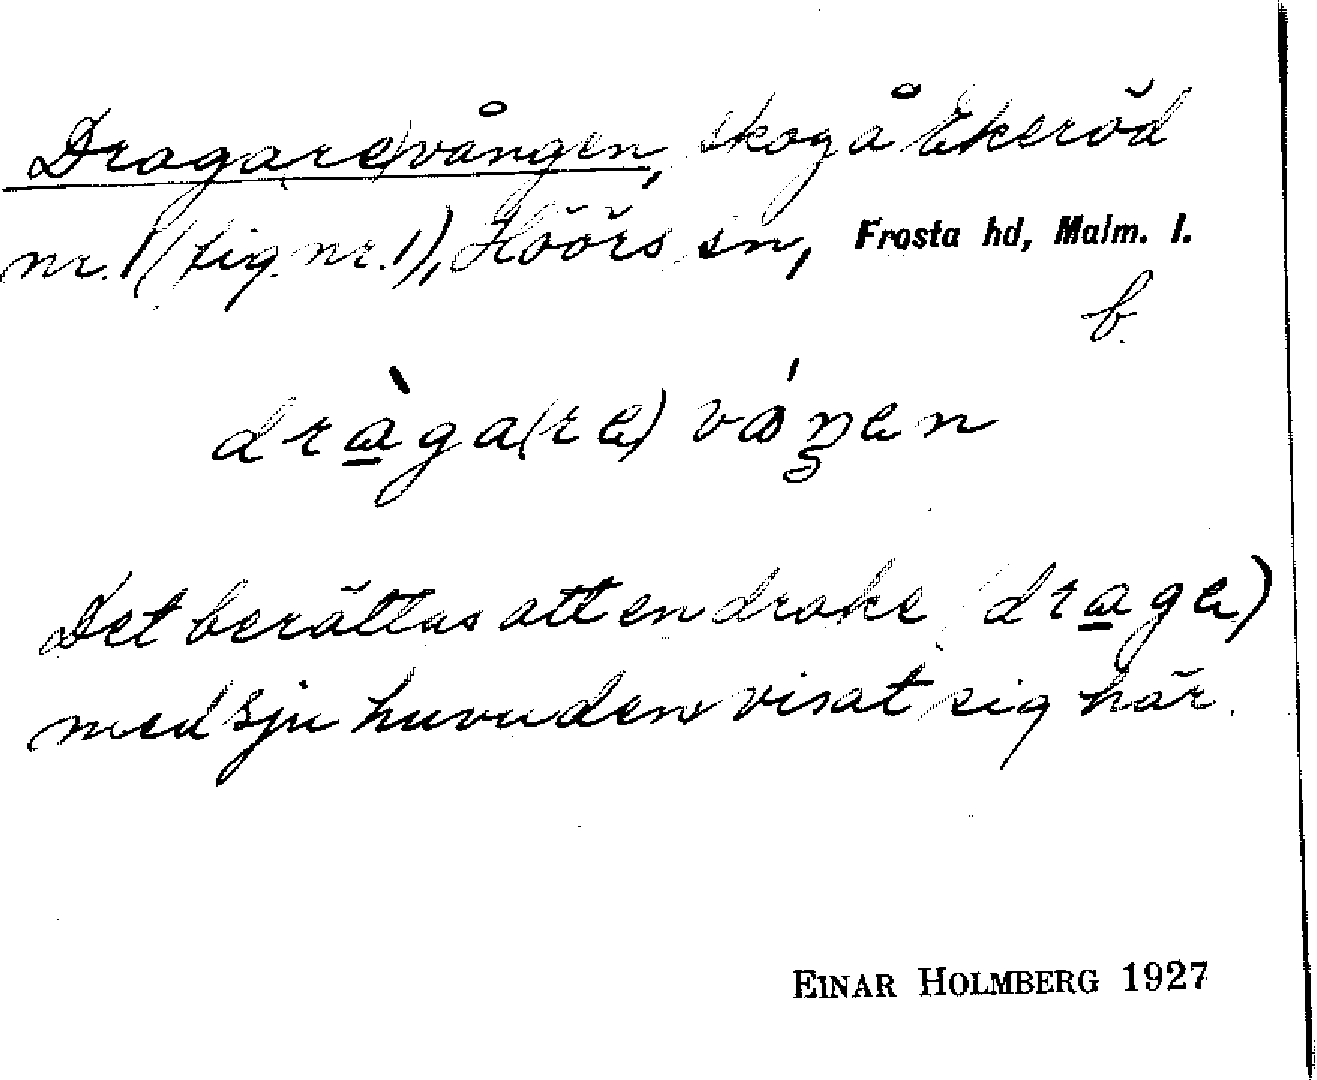 Draga(re)vången, skog å Ekeröd
nr. 1 (fig. nr. 1), Höörs sn, Frosta hd, Malm. l.
b.
dràga(re) våŋen
Det berättas att en drake (drage)
med sju huvuden visat sig här.
EINAR HOLMBERG 1927